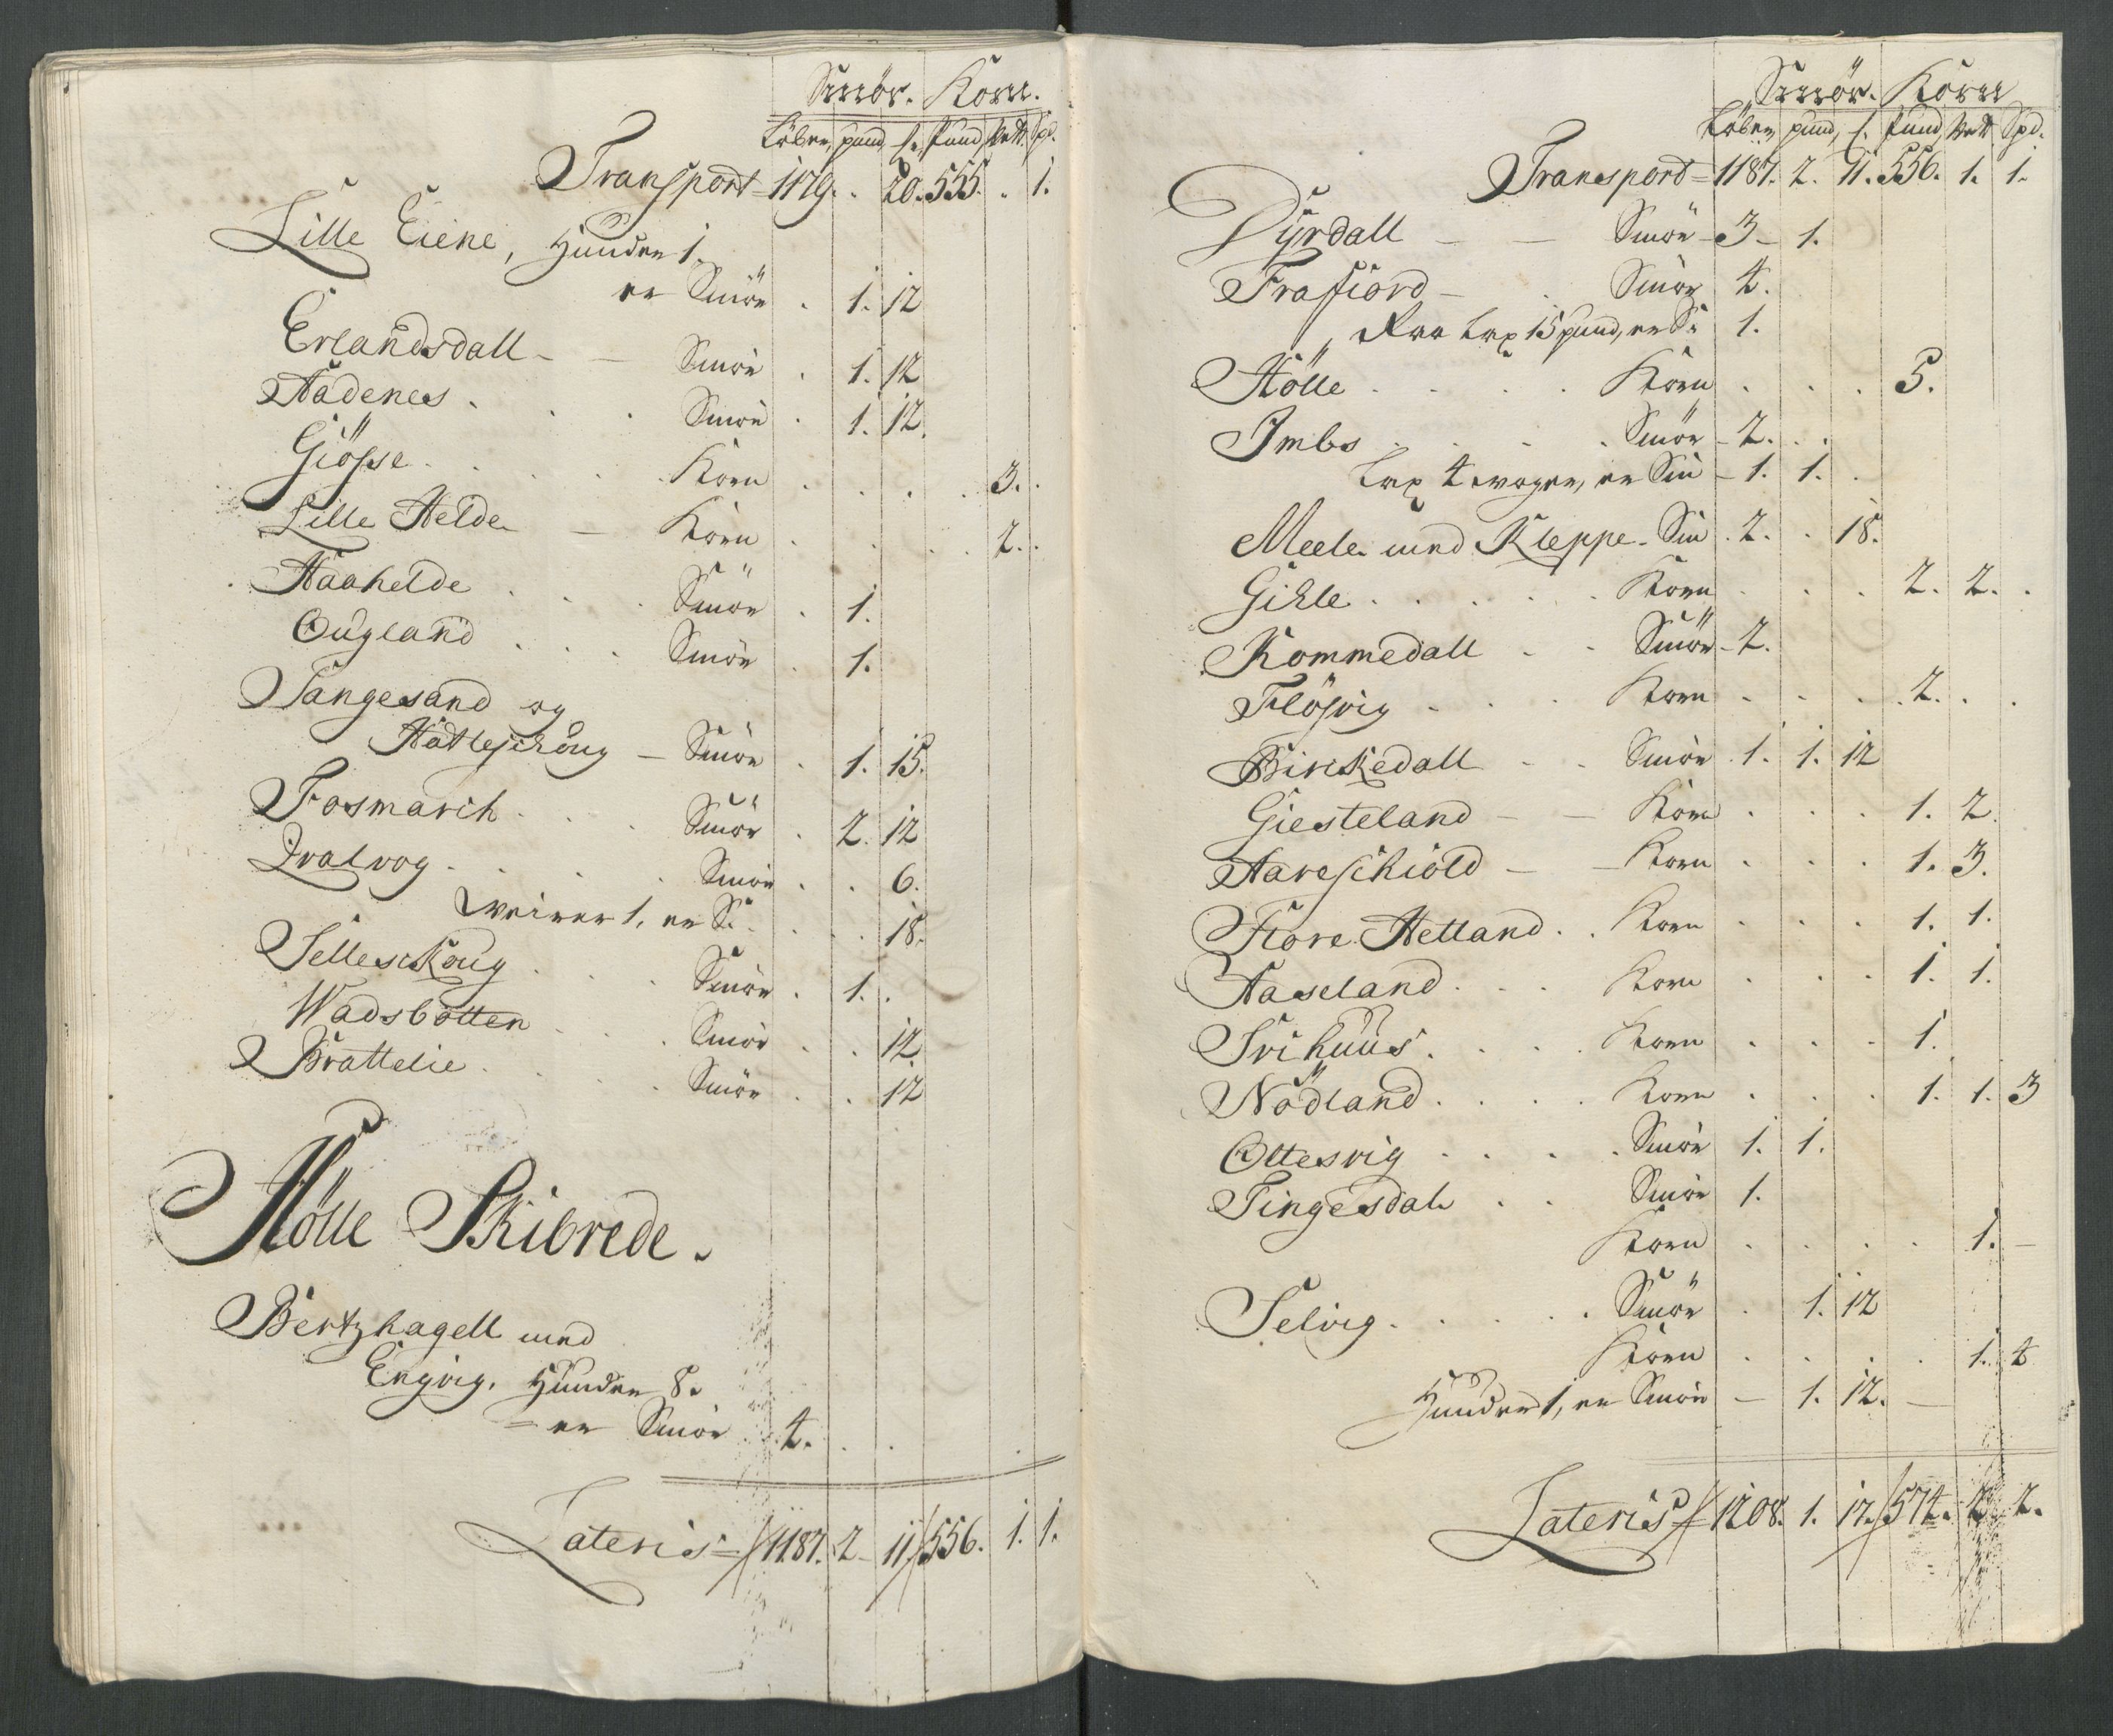 Smör. Korn.
Löber, pund, ſ. Pund, Vett. Spd.
Transport 1179. . 20. 555. . 1.
Lille Eiene, Huuder 1.
er Smör . 1. 12
Erlandsdall - - Smör . 1. 12
Aadenes . . . Smör . 1. 12.
Giöſse . . . . Korn . . . . 3. .
Lille Helde - Korn . . . . 2. .
Haahelde . . . Smör . 1.
Ougland . . . Smör . 1.
Tangesand og
Hatleschoug - Smör . 1. 15.
Fosmarch . . . Smör . 2. 12
Qvalvog . . . . Smör . . 6.
1, er S. . . . 18.
Selleskoug . . . Smör . 1. .
Wadsbotten . . . Smör . . 12
Brattelie . . . . Smör . . 12
Hölle Skibrede.
Bertzhagell med
Engvig. Huuder 8.
= er Smör 4. . .
Lateris = 1187. 2 - 11 / 556. 1. 1.
Smör. Korn
Löber, pund, ſ. Pund, Vett. Spd.
Transport = 1187. 2. 11. 556. 1. 1.
Dyrdall - - Smör - 3 - 1.
Frafiord - . Smör 4.
Raa Lax 15 pund, er S. 1.
Hölle . . . . Korn . . . 5.
Imbs . . . . Smör - 2. . .
Lax 4 woger, er Sm - 1. 1. .
Meele med Kleppe - Sm . 2. . 18.
Gihle . . . . . Korn . . . 2. 2. .
Kommedall . . Smör - 2.
Flöſvig . . . Korn . . . 2. . .
Birckedall . . Smör . 1. 1. 12
Giesteland - - Korn . . . 1. 2.
Hareschiold - - Korn . . . 1. 3.
Fiore Helland . . Korn . . . 1. 1.
Haaseland . . . Korn . . . 1. 1.
Frihuus . . . . Korn . . . 1.
Nödland . . . . Korn . . . 1. 1. 3
Ottesvig . . . . Smör 1. 1.
Tingesdal . . Smör 1.
Korn . . . . 1. -
Selvig . . . . . Smör . 1. 12
Korn . . . . 1. 4
Huuder 1, er Smör - 1. 12. -
Lateris = 1208. 1. 17. / 574. 2. 2.